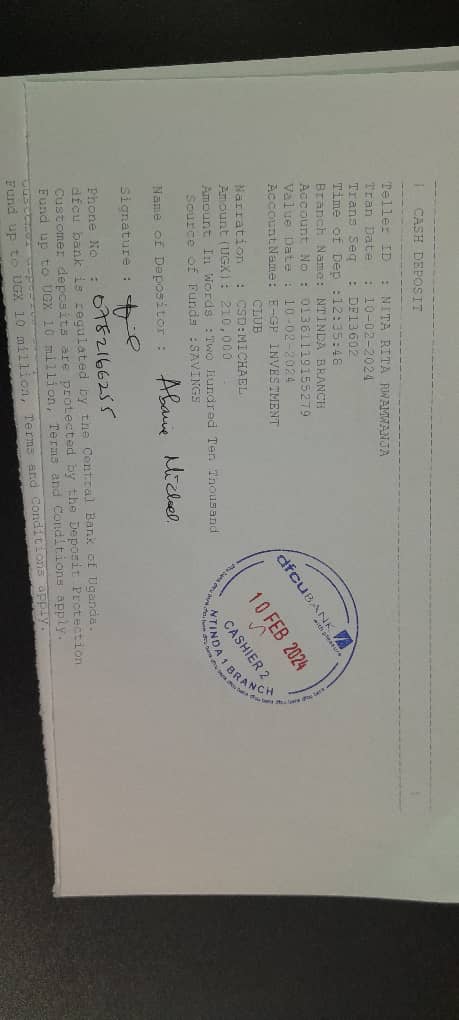 | CASH DEPOSIT |
Teller ID : NITA RITA RWAMWANJA
Tran Date : 10-02-2024
Trans Seq : DF13602
Time of Dep :12:35:48
Branch Name: NTINDA BRANCH
Account No : 01361119155279
Value Date : 10-02-2024
AccountName: E-GP INVESTMENT
CLUB
Narration : CSD:MICHAEL
Amount (UGX): 210,000
Amount In Words :Two Hundred Ten Thousand
Source of Funds :SAVINGS
Name of Depositor : Abaine Michael
Signature :
Phone No : 0782166255
dfcu bank is regulated by the Central Bank of Uganda.
Customer deposits are protected by the Deposit Protection
Fund up to UGX 10 million, Terms and Conditions apply.
Fund up to UGX 10 million, Terms and Conditions apply.
dfcu BANK
10 FEB 2024
CASHIER 2
NTINDA 1 BRANCH